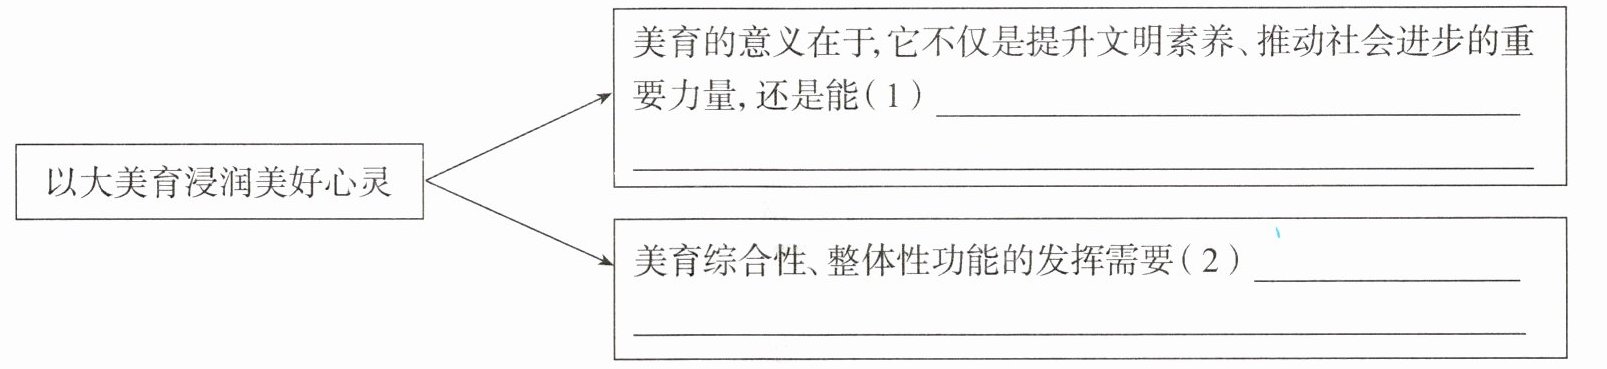 美育的意义在于,它不仅是提升文明素养、推动社会进步的重
要力量,还是能(1)
以大美育浸润美好心灵
美育综合性、整体性功能的发挥需要(2)